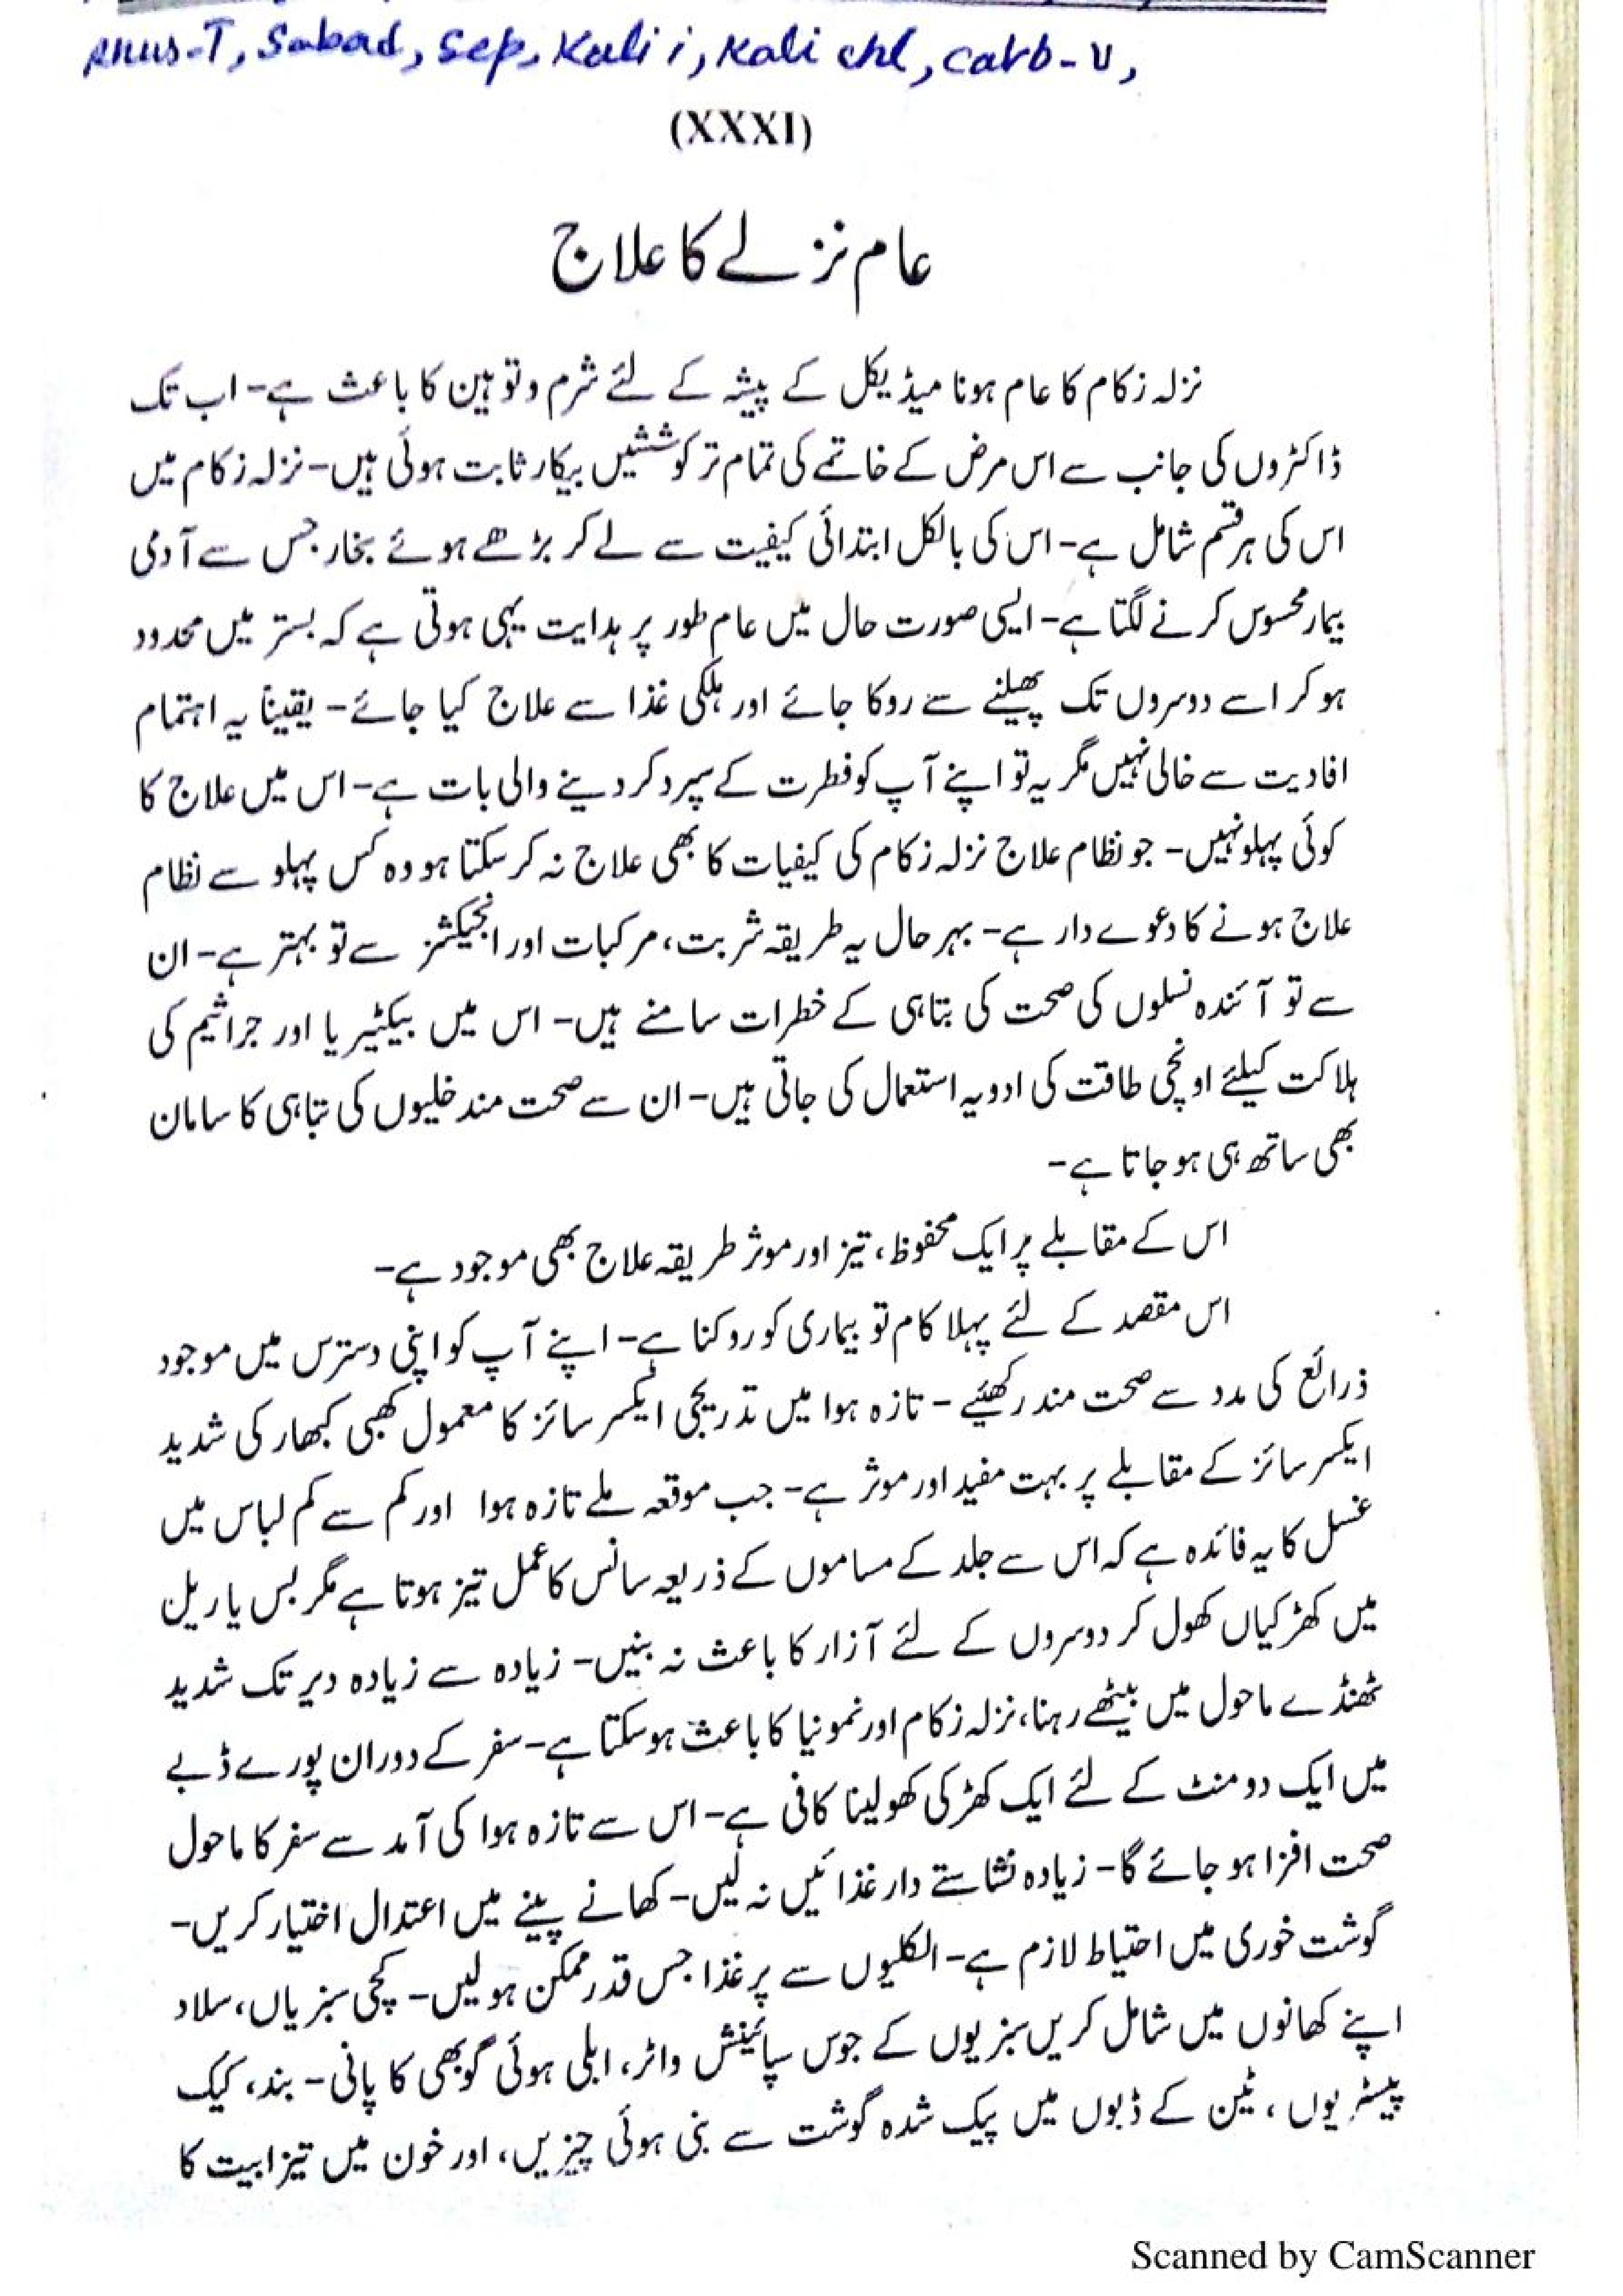 Rhus-T, Sabad, Sep, Kali i, Kali chl, Carb-v,
(XXXI)
عام نزلے کا علاج
نزلہ زکام کا عام ہونا میڈیکل کے پیشہ کے لئے شرم و توہین کا باعث ہے- اب تک
ڈاکٹروں کی جانب سے اس مرض کے خاتمے کی تمام تر کوششیں بیکار ثابت ہوئی ہیں- نزلہ زکام میں
اس کی ہر قسم شامل ہے- اس کی بالکل ابتدائی کیفیت سے لے کر بڑھے ہوئے بخار جس سے آدمی
بیمار محسوس کرنے لگتا ہے- ایسی صورت حال میں عام طور پر ہدایت یہی ہوتی ہے کہ بستر میں محدود
ہو کر اسے دوسروں تک پھیلنے سے روکا جائے اور ہلکی غذا سے علاج کیا جائے- یقیناً یہ اہتمام
افادیت سے خالی نہیں مگر یہ تو اپنے آپ کو فطرت کے سپرد کر دینے والی بات ہے- اس میں علاج کا
کوئی پہلو نہیں- جو نظام علاج نزلہ زکام کی کیفیات کا بھی علاج نہ کر سکتا ہو وہ کس پہلو سے نظام
علاج ہونے کا دعوے دار ہے- بہر حال یہ طریقہ شربت، مرکبات اور انجیکشنز سے تو بہتر ہے- ان
سے تو آئندہ نسلوں کی صحت کی بتاہی کے خطرات سامنے ہیں- اس میں بیکٹیریا اور جراثیم کی
ہلاکت کیلئے اونچی طاقت کی ادویہ استعمال کی جاتی ہیں- ان سے صحت مند خلیوں کی تباہی کا سامان
بھی ساتھ ہی ہو جاتا ہے-
اس کے مقابلے پر ایک محفوظ، تیز اور موثر طریقہ علاج بھی موجود ہے-
اس مقصد کے لئے پہلا کام تو بیماری کو روکنا ہے- اپنے آپ کو اپنی دسترس میں موجود
ذرائع کی مدد سے صحت مند رکھئیے- تازہ ہوا میں تدریجی ایکسر سائز کا معمول کبھی کبھار کی شدید
ایکسر سائز کے مقابلے پر بہت مفید اور موثر ہے- جب موقعہ ملے تازہ ہوا اور کم سے کم لباس میں
غسل کا یہ فائدہ ہے کہ اس سے جلد کے مساموں کے ذریعہ سانس کا عمل تیز ہوتا ہے مگر بس یا ریل
میں کھڑکیاں کھول کر دوسروں کے لئے آزار کا باعث نہ بنیں- زیادہ سے زیادہ دیر تک شدید
ٹھنڈے ماحول میں بیٹھے رہنا، نزلہ زکام اور نمونیا کا باعث ہو سکتا ہے- سفر کے دوران پورے ڈبے
میں ایک دو منٹ کے لئے ایک کھڑکی کھولینا کافی ہے- اس سے تازہ ہوا کی آمد سے سفر کا ماحول
صحت افزا ہو جائے گا- زیادہ نشاستے دار غذائیں نہ لیں- کھانے پینے میں اعتدال اختیار کریں-
گوشت خوری میں احتیاط لازم ہے- الکلیوں سے پر غذا جس قدر ممکن ہو لیں- کچی سبزیاں، سلاد
اپنے کھانوں میں شامل کریں سبزیوں کے جوس سپائینش واٹر، ابلی ہوئی گوبھی کا پانی- بند، کیک
پیسٹریوں، ٹین کے ڈبوں میں پیک شدہ گوشت سے بنی ہوئی چیزیں، اور خون میں تیزابیت کا
Scanned by CamScanner